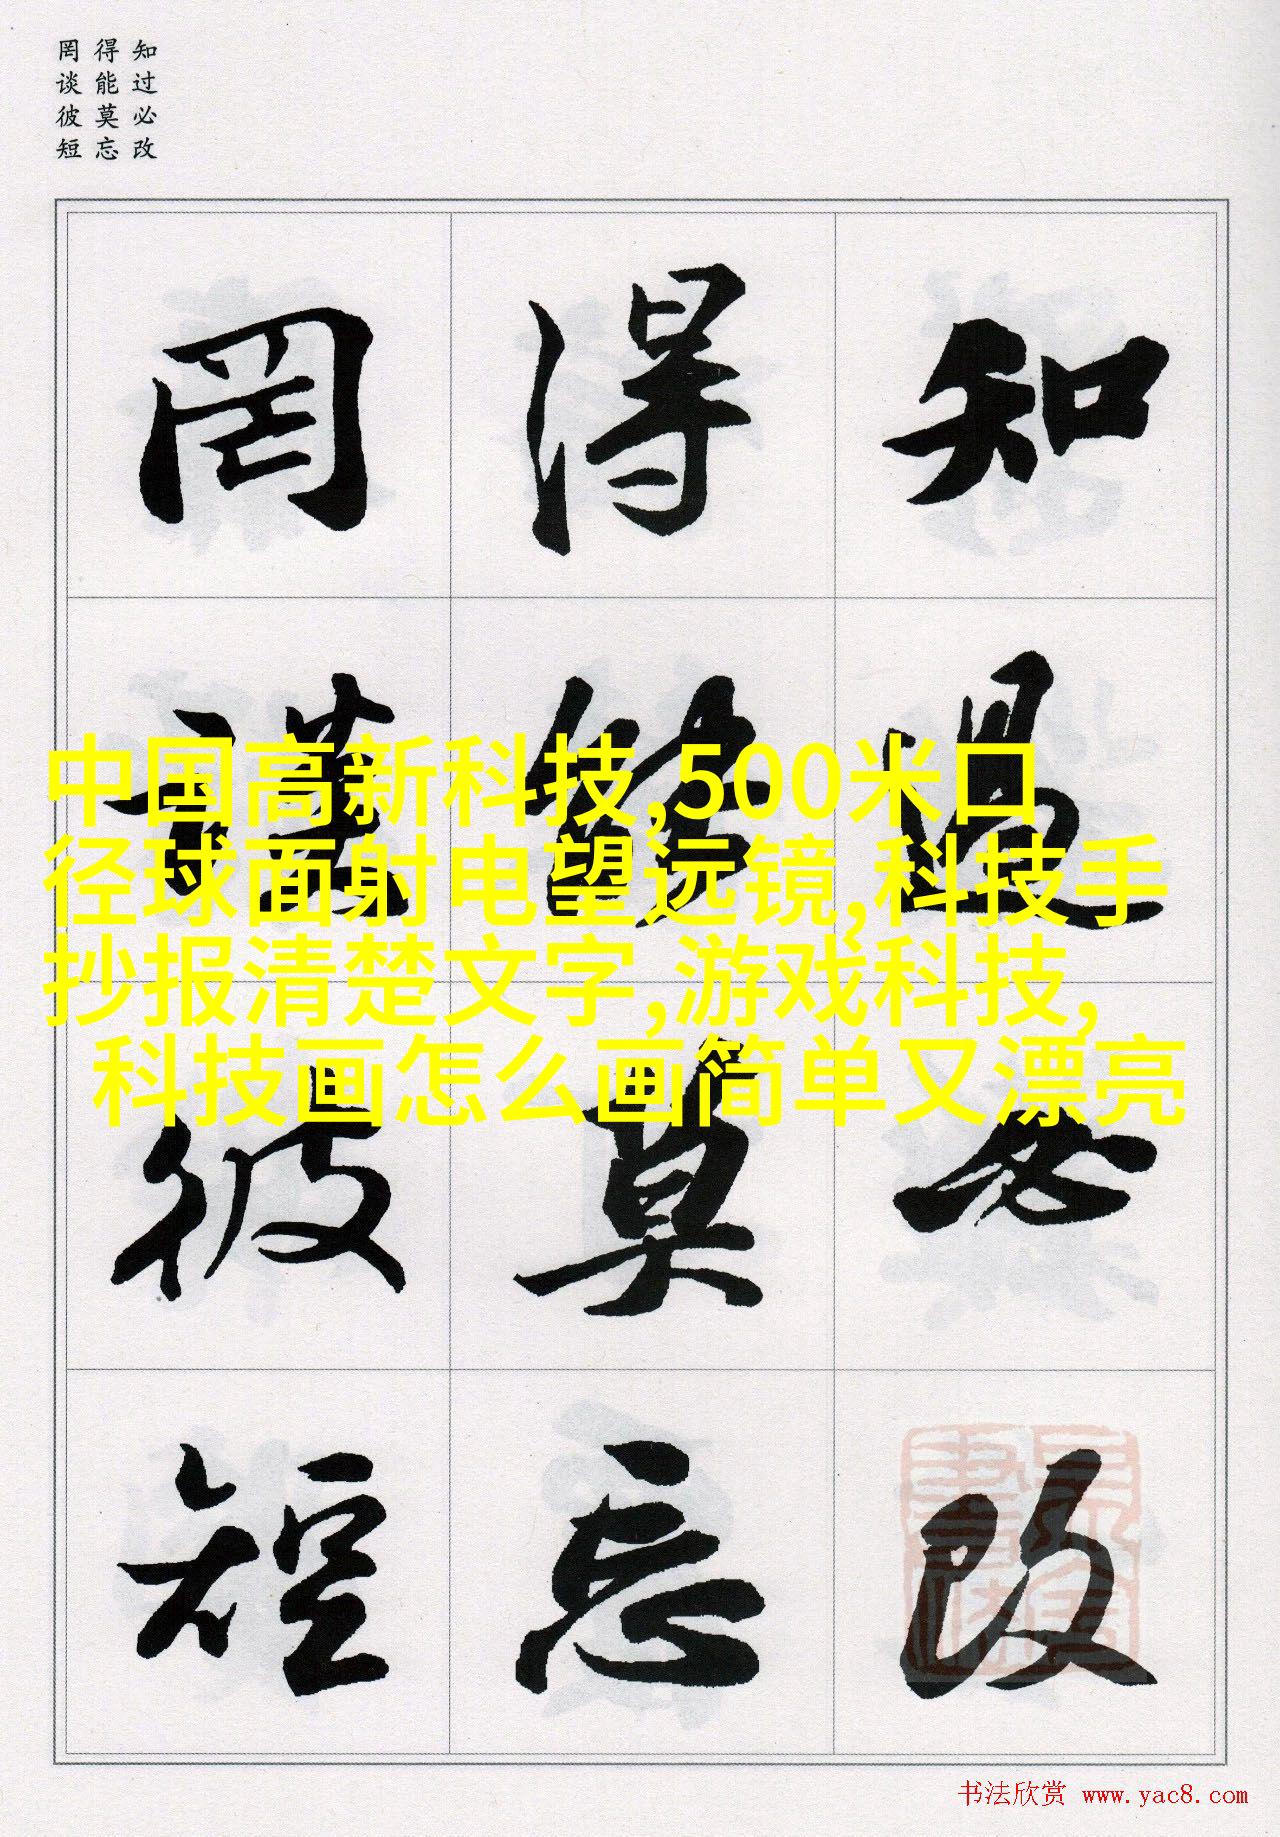 知过必改
得能莫忘
罔谈彼短
知過必改
得能莫忘
罔談彼短
中国高新科技,500米口
径球面射电望远镜,科技手
抄报清楚文字,游戏科技,
科技画怎么画简单又漂亮
书法欣赏 www.yac8.com